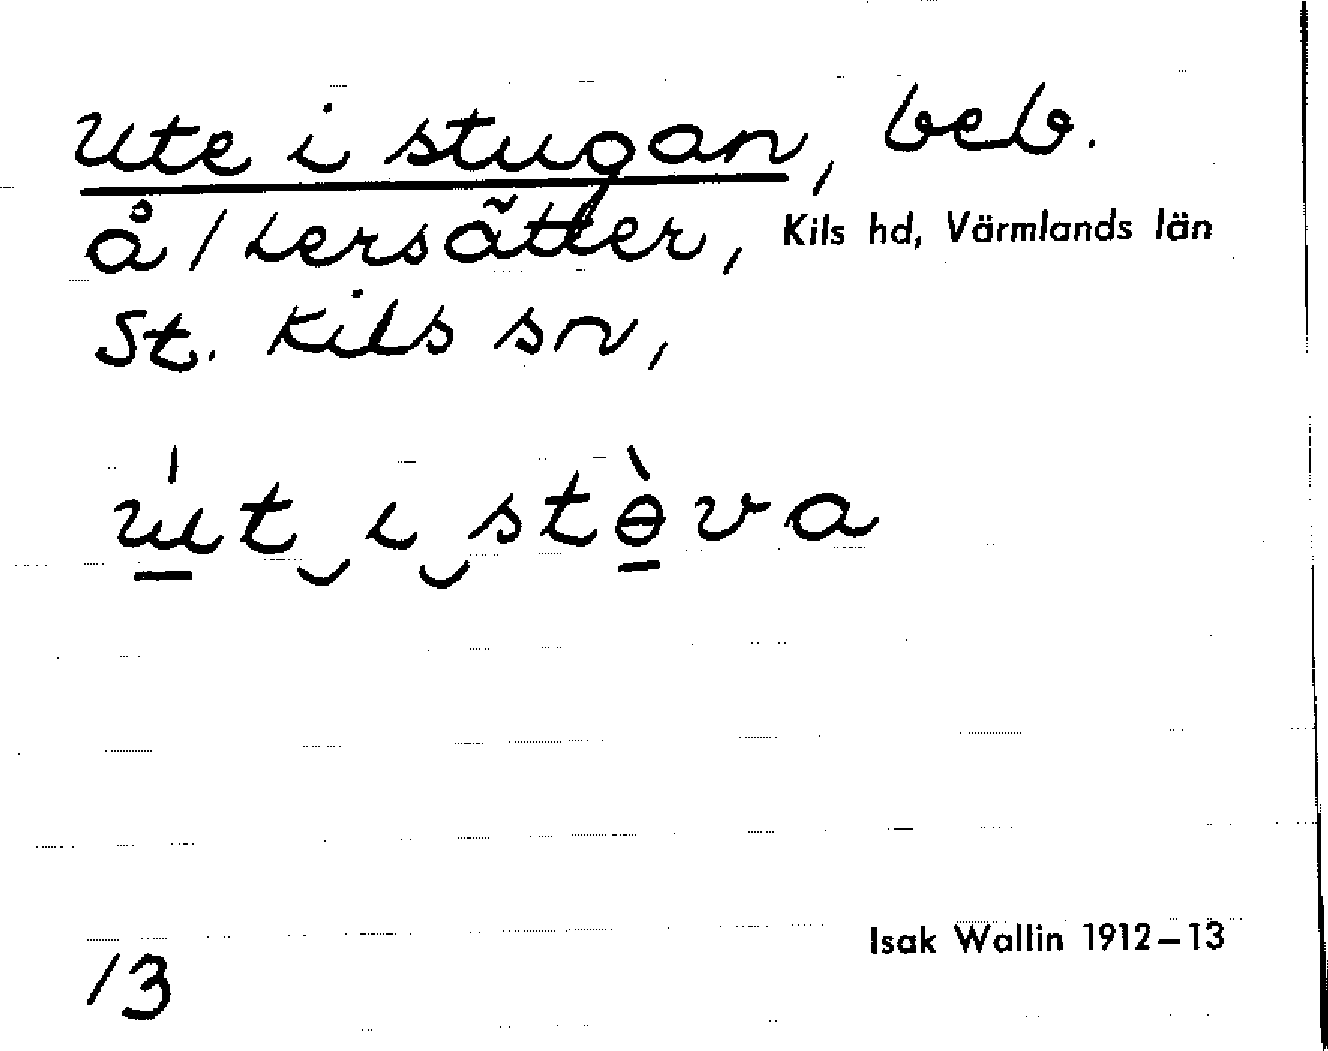 Ute i stugan, beb.
å 1 Lersätter, Kils hd, Värmlands län
St. Kils sn,
ú̲t‿i‿stɵ̲̀va
Isak Wallin 1912–13
13